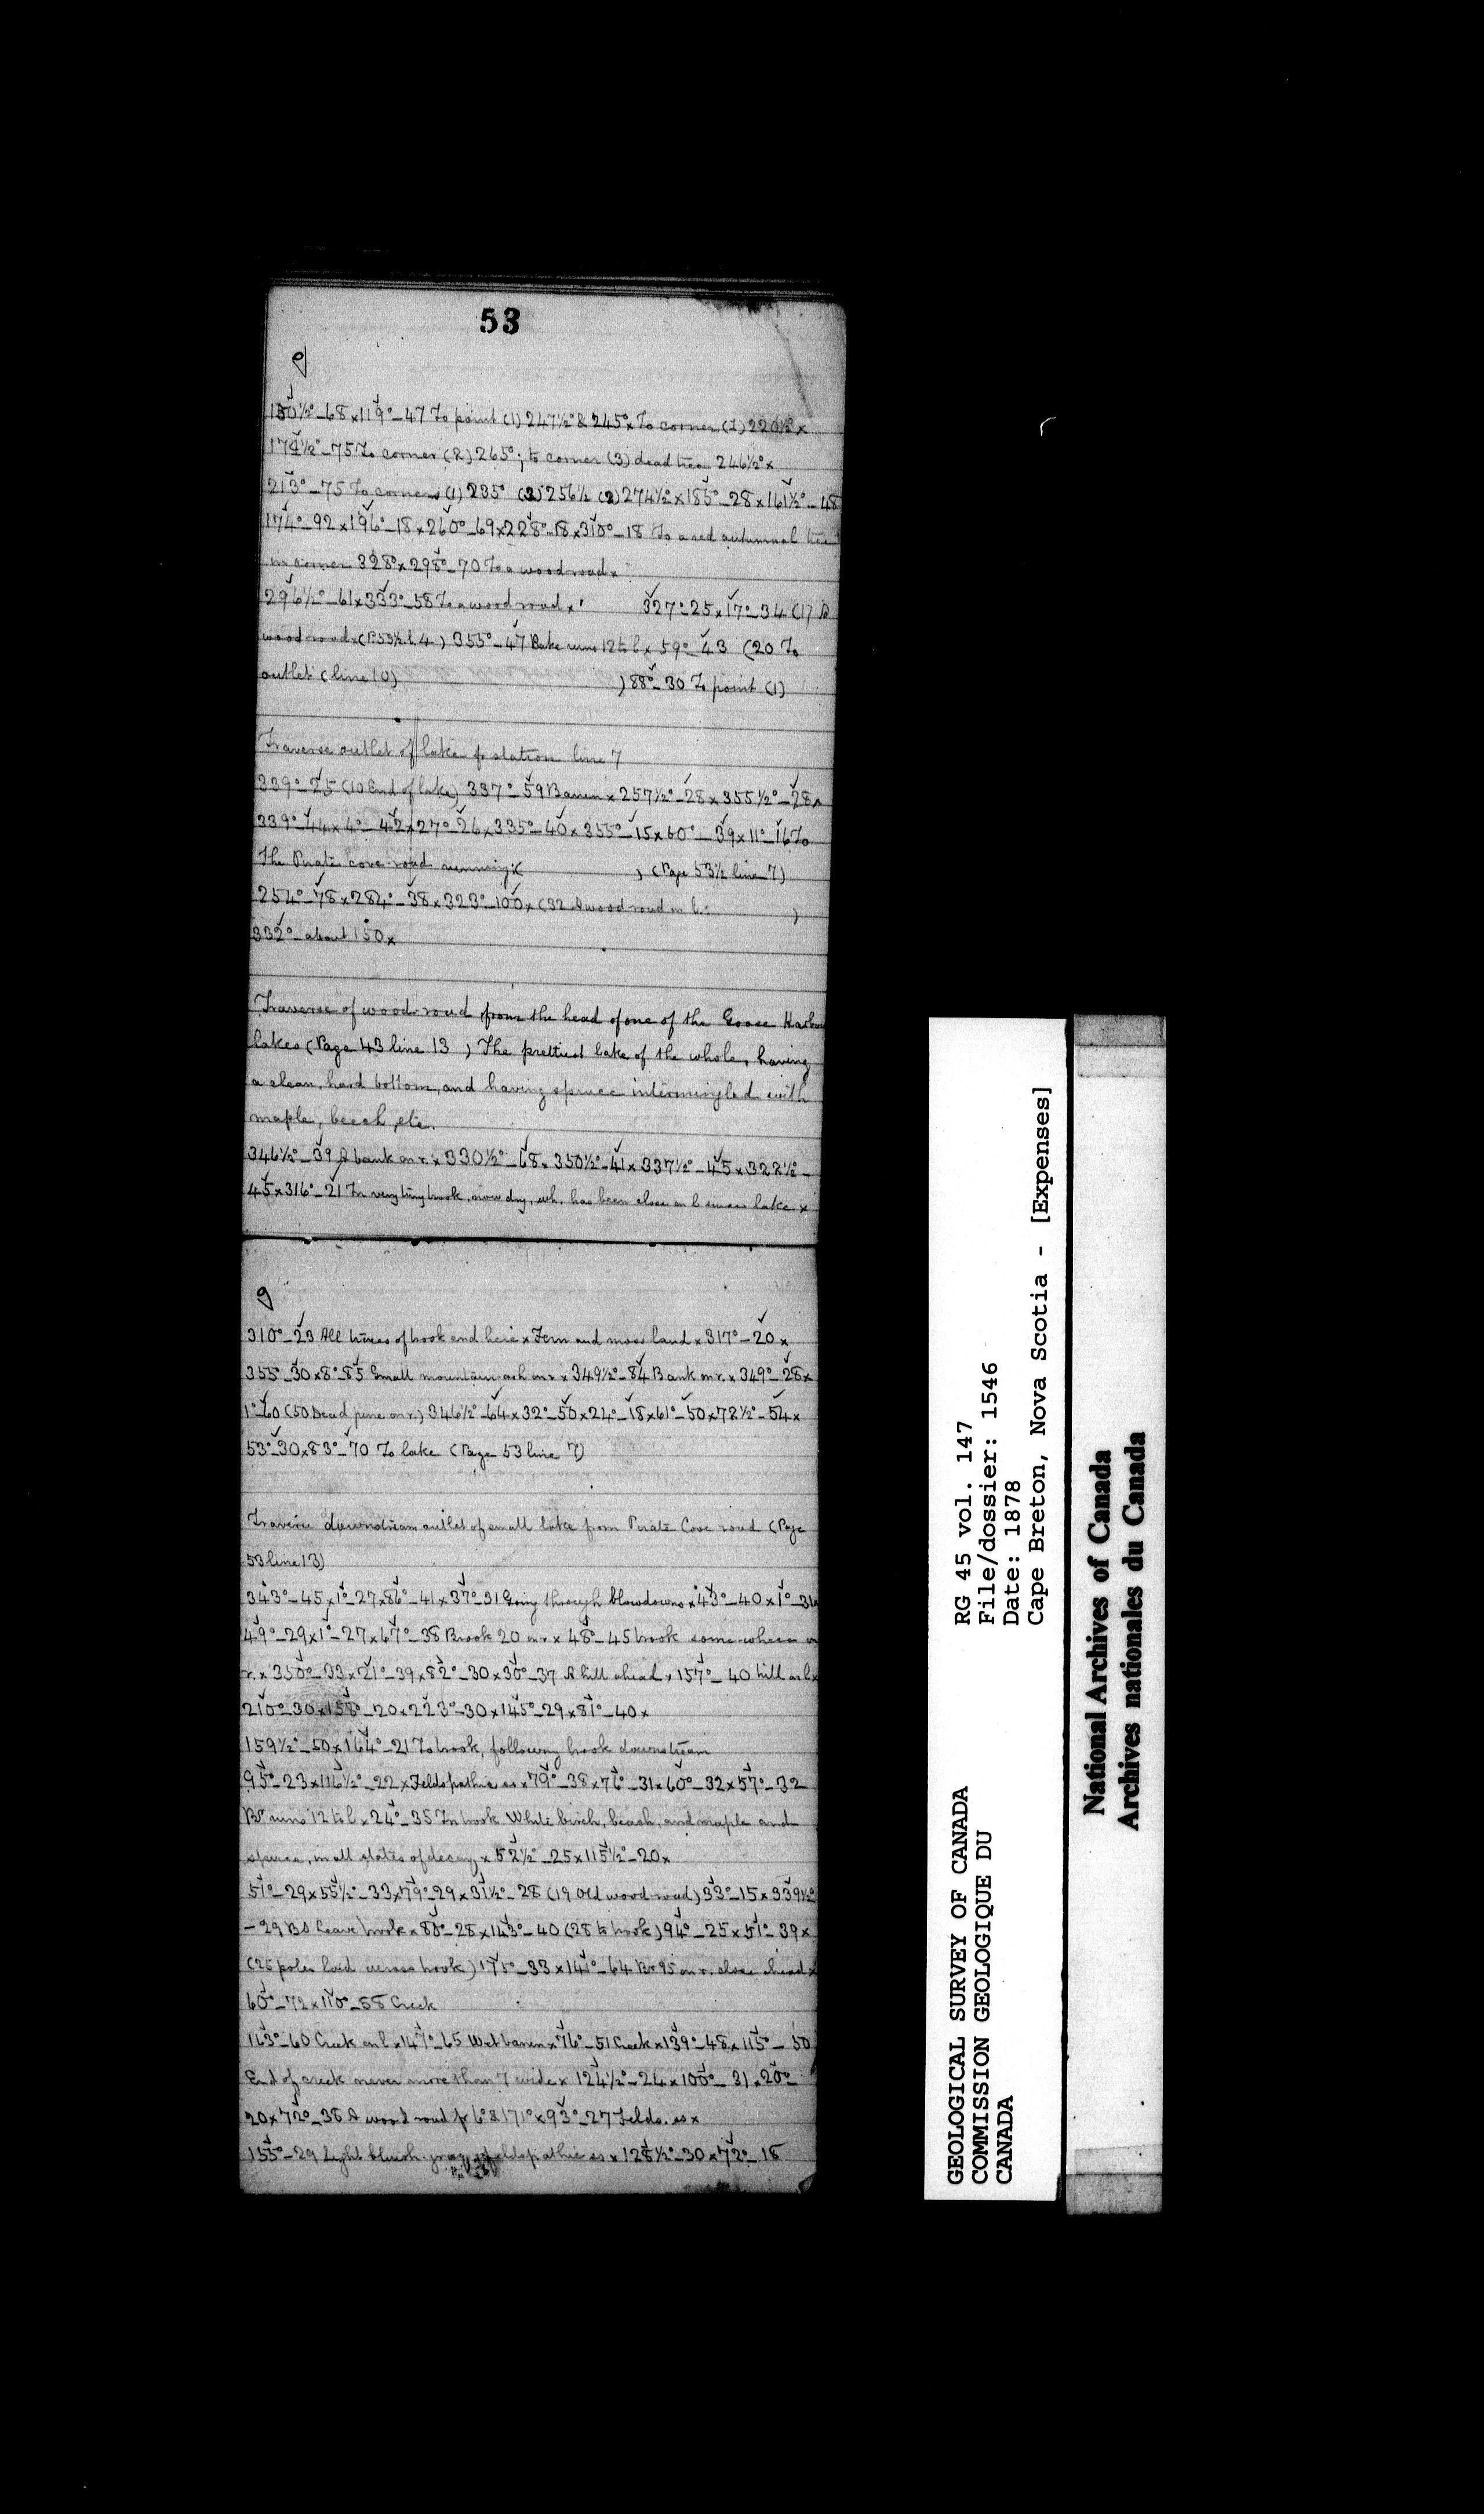 53
9
130½°_68x119°_47 To point (1) 247½° & 245°x To corner (1) 220½°x
174½°_75 To corner (2) 265°; to corner (3) dead tree 246½°x
213°_75 To corners (1) 235° (2) 256½ (2) 274½°x185°_28x161½°_48
174°_92x196°_18x260°_69x228°_18x310°_18 To a red autumnal tree
in corner 328°x298°_70 To a wood road x
296½°_61x333°_58 To a wood road x 327°_25x17°_34 (17 A
wood road x (P. 53½ l. 4) 355°_47 Lake runs 12 to l x 59°_43 (20 To
outlet (line 10) ) 88°_30 To point (1)
Traverse outlet of lake fr station line 7
339°_25 (10 End of lake) 337°_59 Barren x 257½°_28x355½°_28x
339°_44x4°_42x27°_26x335°_40x355°_15x60°_39x11°_16 To
the Pirate cove road running x , (Page 53½ line 7)
254°_78x284°_38x323°_100x (32 A wood road on l. )
332°_about 150x
Traverse of wood road from the head of one of the Goose Harbour
lakes (Page 43 line 13 ) The prettiest lake of the whole, having
a clean, hard bottom, and having spruce intermingled with
maple, beech, etc.
346½°_39 A bank on r. x 330½°_68x350½°_41x337½°_45x322½°_
45x316°_21 In very tiny brook, now dry, wh. has been close on l since lake x
9
310°_23 All traces of brook end here x Fern and moss land x 317°_20x
355°_30x8°_85 Small mountain ash on r x 349½°_84 Bank on r. x 349°_28x
1°_60 (50 Dead pine on r.) 346½°_64x32°_50x24°_18x61°_50x72½°_54x
53°_30x83°_70 To lake (Page 53 line 7)
Traverse downstream outlet of small lake from Pirate Cove road (Page
53 line 13)
343°_45x1°_27x86°_41x37°_31 Going through blowdowns x 43°_40x1°_31x
49°_29x1°_27x67°_38 Brook 20 on r x 48°_45 brook somewhere on
r. x 350°_33x21°_39x82°_30x30°_37 A hill ahead x 157°_40 hill on l x
210°_30x158°_20x223°_30x145°_29x81°_40x
159½°_50x164°_21 To brook, following brook downstream
95°_23x116½°_22x Feldspathic ss x 79°_38x76°_31x60°_32x57°_32
Br runs 12 to l. x 24°_35 In brook White birch, beach, and maple and
spruce, in all states of decay x 52½°_25x115½°_20x
51°_29x55½°_33x79°_29x31½°_28 (19 Old wood road) 33°_15x339½°
_29 Bs Leave brook x 88°_28x143°_40 (28 to brook) 94°_25x51°_39x
(25 poles laid across brook) 175°_33x141°_64 Br 95 on r. close ahead x
60°_72x110°_58 Creek
113°_60 Creek on l x 147°_65 Wet barren x 76°_51 Creek x 139°_48x115°_50
End of creek never more than 7 wide x 124½°_24x100°_31x20°_
20x72°_38 A wood road fr 6° & 171°x93°_27 Felds. ss x
155°_29 Light bluish gray feldspathic ss x 128½°_30x72°_18
GEOLOGICAL SURVEY OF CANADA
COMMISSION GEOLOGIQUE DU
CANADA
RG 45 vol. 147
File/dossier: 1546
Date: 1878
Cape Breton, Nova Scotia - [Expenses]
National Archives of Canada
Archives nationales du Canada